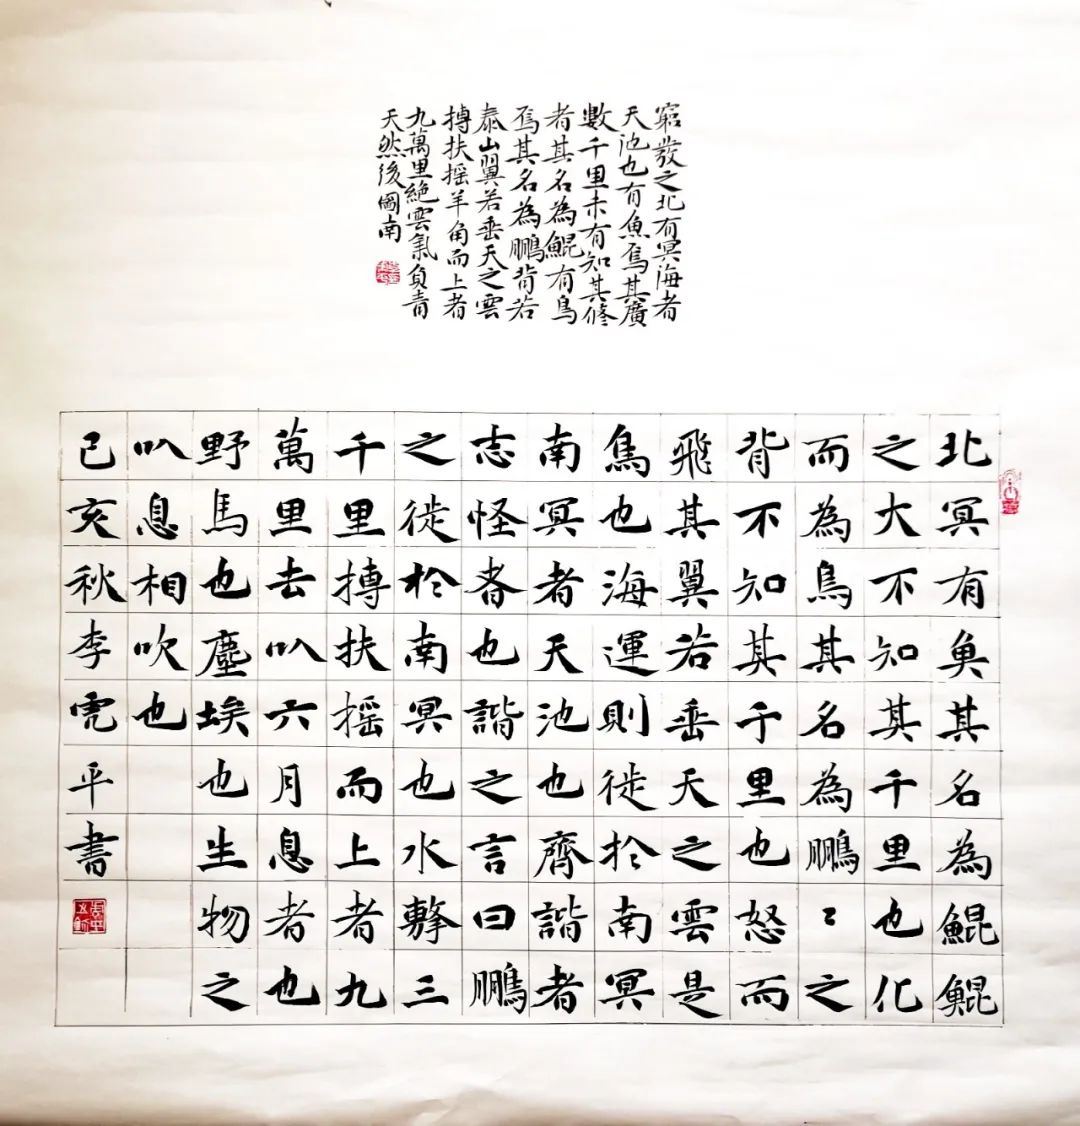 窮發之北有冥海者
天池也有魚焉其廣
數千里未有知其修
者其名為鯤有鳥
焉其名為鵬背若
泰山翼若垂天之雲
摶扶摇羊角而上者
九萬里絕雲氣負青
天然後圖南
北冥有魚其名為鯤鯤
之大不知其千里也化
而為鳥其名為鵬〻之
背不知其千里也怒而
飛其翼若垂天之雲是
鳥也海運則徙於南冥
南冥者天池也齊諧者
志怪者也諧之言曰鵬
之徙於南冥也水擊三
千里摶扶摇而上者九
萬里去以六月息者也
野馬也塵埃也生物之
以息相吹也
己亥秋李虎平書